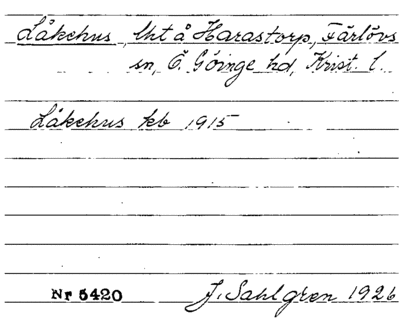 Låkehus, lht å Harastorp, Färlövs
sn, Ö. Göinge hd, Krist. l.
Låkehus kb 1915
Nr 5420 J. Sahlgren 1926